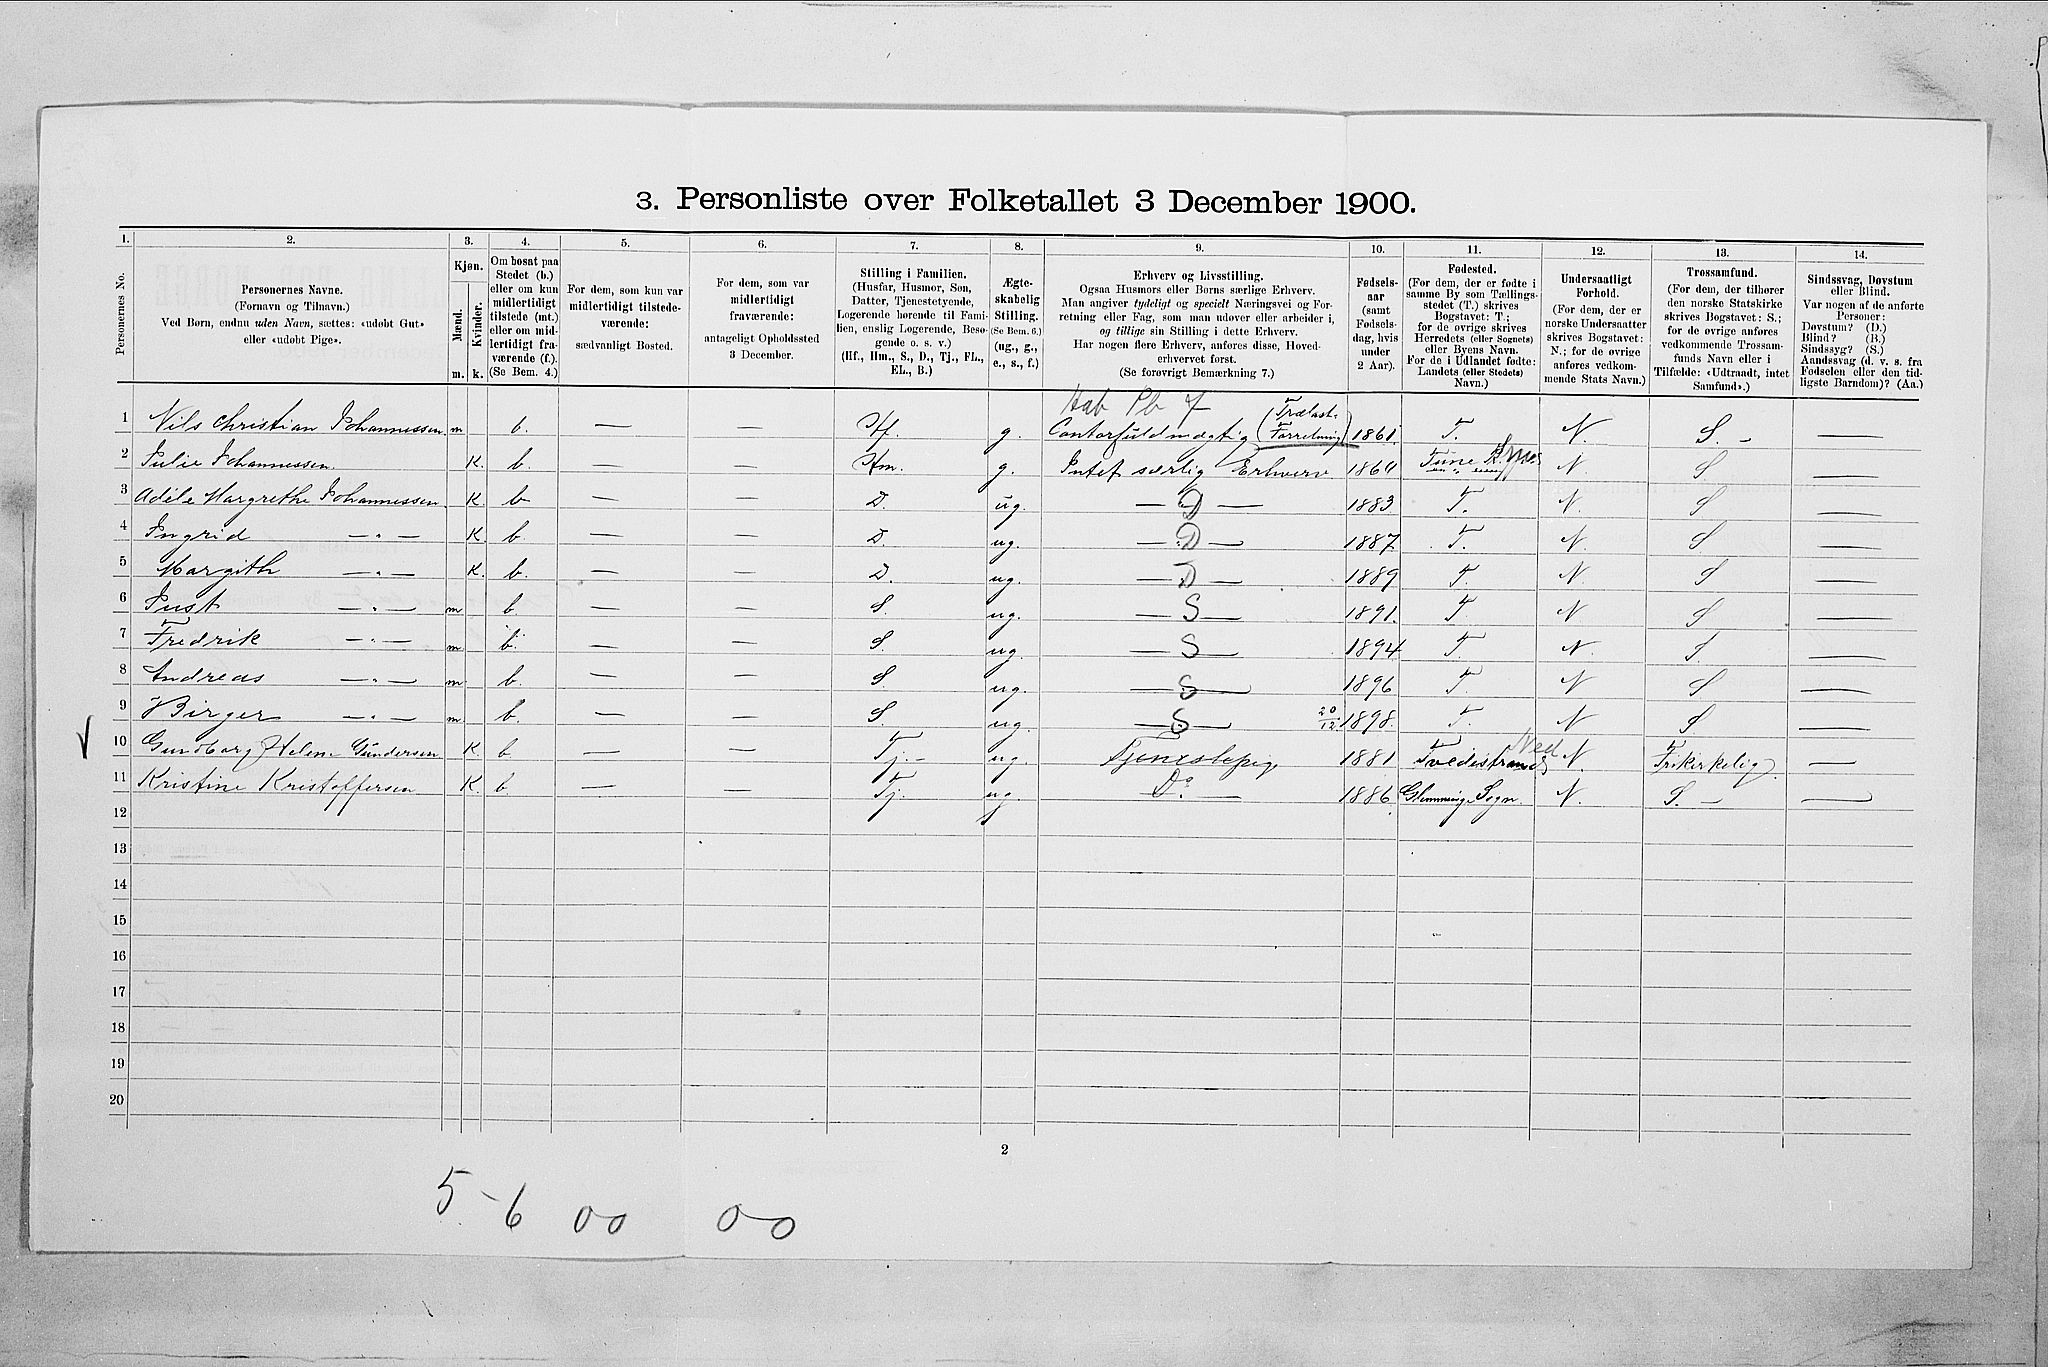 3. Personliste over Folketallet 3 December 1900.
1. 2. 3. 4. 5. 6. 7. 8. 9. 10. 11. 12. 13. 14.
Personernes No.
Personernes Navne.
(Fornavn og Tilnavn.)
Ved Børn, endnu uden Navn, sættes: «udøbt Gut»
eller «udøbt Pige».
Kjøn.
Mænd.
Kvinder.
m. k.
Om bosat paa
Stedet (b.)
eller om kun
midlertidigt
tilstede (mt.)
eller om mid-
lertidigt fra-
værende (f.)
(Se Bem. 4.)
For dem, som kun var
midlertidigt tilstede-
værende:
sædvanligt Bosted.
For dem, som var
midlertidigt
fraværende:
antageligt Opholdssted
3 December.
Stilling i Familien.
(Husfar, Husmor, Søn,
Datter, Tjenestetyende,
Logerende hørende til Fami-
lien, enslig Logerende, Besø-
gende o. s. v.)
(Hf., Hm., S., D., Tj., FL.,
EL., B.)
Ægte-
skabelig
Stilling.
(Se Bem. 6.)
(ug., g.,
e., s., f.)
Erhverv og Livsstilling.
Ogsaa Husmors eller Børns særlige Erhverv.
Man angiver tydeligt og specielt Næringsvei og For-
retning eller Fag, som man udøver eller arbeider i,
og tillige sin Stilling i dette Erhverv.
Har nogen flere Erhverv, anføres disse, Hoved-
erhvervet først.
(Se forøvrigt Bemærkning 7.)
Fødsels-
aar
(samt
Fødsels-
dag, hvis
under
2 Aar).
Fødested.
(For dem, der er fødte i
samme By som Tællings-
stedet (T.) skrives
Bogstavet: T.;
for de øvrige skrives
Herredets (eller Sognets)
eller Byens Navn.
For de i Udlandet fødte:
Landets (eller Stedets)
Navn.)
Undersaatligt
Forhold.
(For dem, der er
norske Undersaatter
skrives Bogstavet:
N.; for de øvrige
anføres vedkom-
mende Stats Navn.)
Trossamfund.
(For dem, der tilhører
den norske Statskirke
skrives Bogstavet: S.;
for de øvrige anføres
vedkommende Trossam-
funds Navn eller i
Tilfælde: «Udtraadt, intet
Samfund».)
Sindssvag, Døvstum
eller Blind.
Var nogen af de anførte
Personer:
Døvstum? (D.)
Blind? (B.)
Sindssyg? (S.)
Aandssvag (d. v. s. fra
Fødselen eller den tid-
ligste Barndom)? (Aa.)
1 Nils Christian Johannessen m b. — — Hf. g. Contorfuldmægtig (Trælast-Forretning) 1861 T. N. S. — —
2 Julie Johannessen K. b. — — Hm. g. Intet særlig Erhverv N. S —
3 Adéle Margrethe Johannessen K. b — — D. ug. — D — 1883 T. N. S —
4 Ingrid — „ — K. b. — — D. ug. — D — 1887 T. N. S —
5 Margith — „ — K. b. — — D. ug. — D — 1889 T. N. S —
6 Just — „ — m b. — — S. ug. — S — 1891. T N S —
7 Fredrik — „ — m b. — — S. ug. — S — 1894 T. N. S. —
8 Andreas — „ — m b. — — S. ug. — S — 1896 T. N S —
9 Birger — „ — m b. — — S. ug. — S — 20/12 1898. T. N S —
10 Gundborg Helene Gundersen K. b — — Tj. — ug. Tjenestepige 1881 Tvedestrand N. Frikirkelig —
11 Kristine Kristoffersen K. b. — — Tj. ug. — Do. — 1886. Glemminge Sogn. N. S. — —
12
13
14
15
16
17
18
19
20
2
5 - 6 00 00